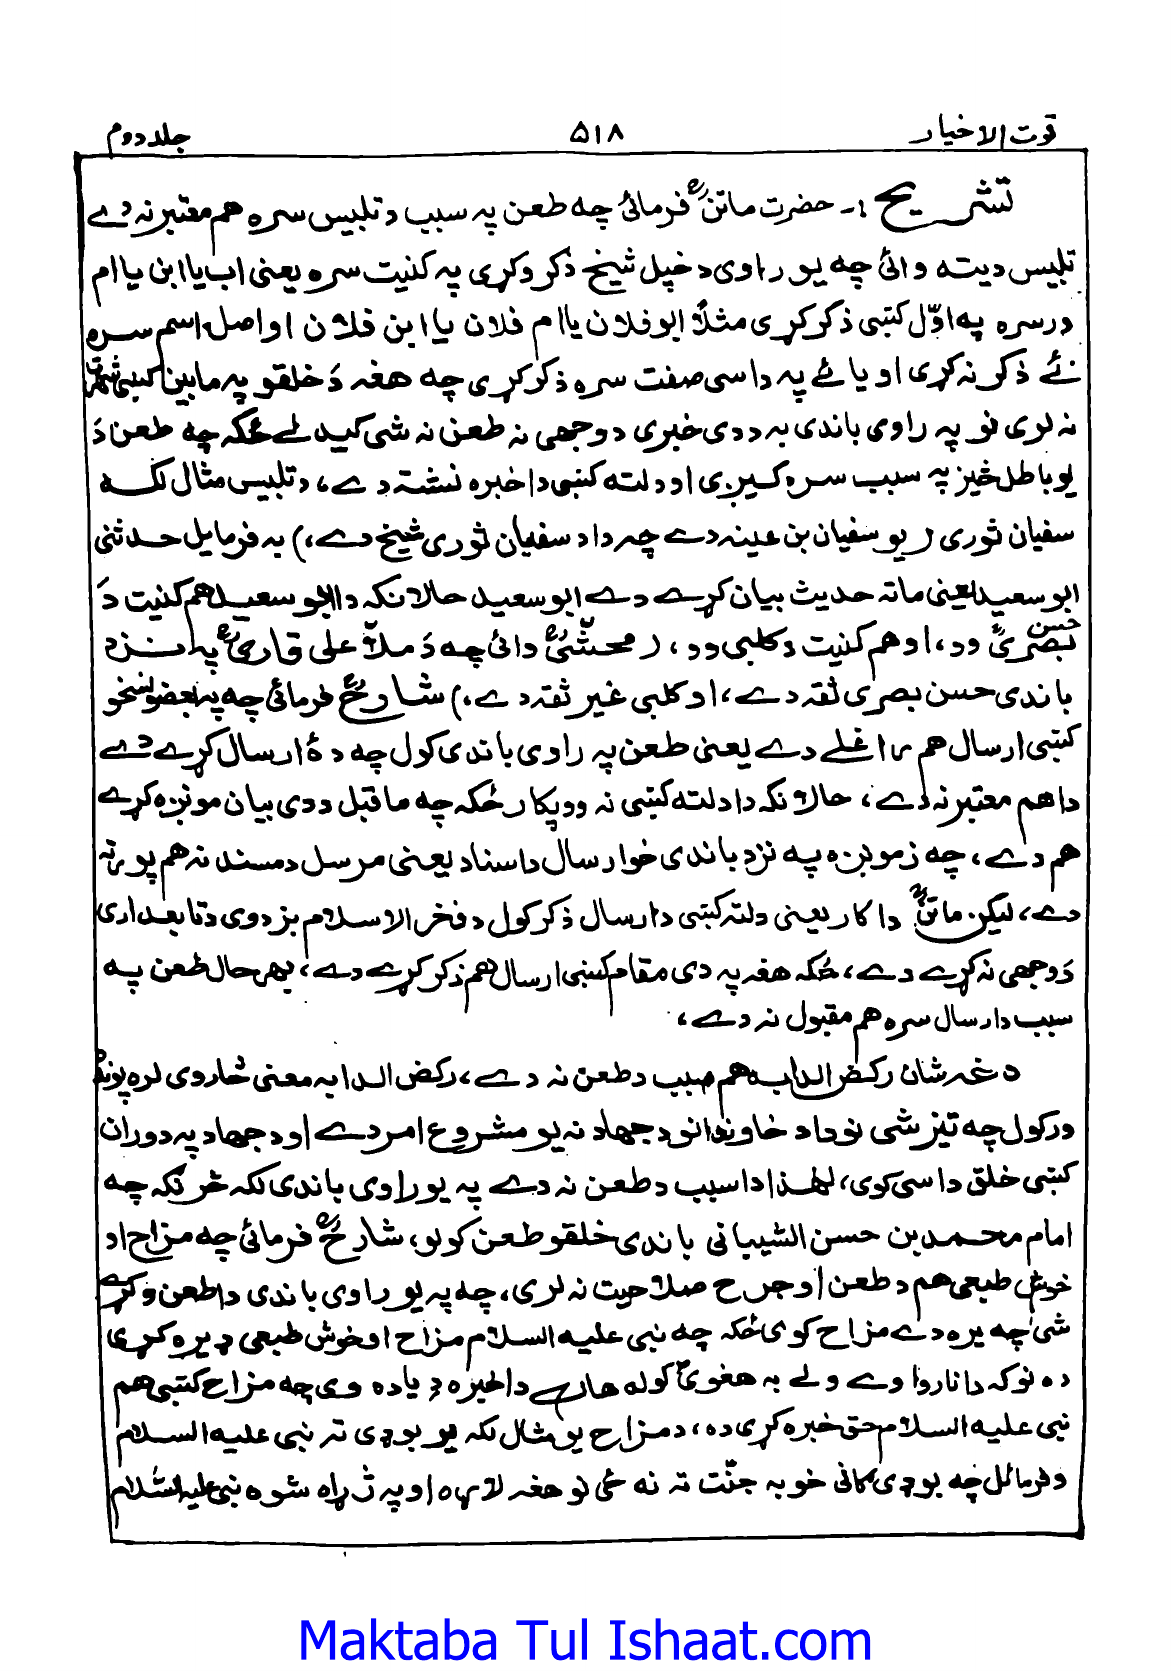 قوت الاخیار ۵۱۸ جلد دوم
تشریح :- حضرت ماتنؒ فرمائی چه طعن په سبب د تلبیس سره هم معتبر نه دے
تلبیس دیته وائی چه یو راوی د خپل شیخ ذکر وکړی په کنیت سره یعنی اب یا ابن یا ام
ورسره په اوّل کښی ذکر کړی مثلاً ابو فلان یا ام فلان یا ابن فلان او اصل اسم سره
ئے ذکر نه کړی او یا ئے په داسی صفت سره ذکر کړی چه هغه دَ خلقو په مابین کښی شهرت
نه لری نو په راوی باندی په ددی خبری د وجهی نه طعن نه شی کیدلے ځکه چه طعن دَ
یو باطل څیز په سبب سره کیږی او دلته کښی داخبره نشته دے، د تلبیس مثال لکه
سفیان ثوری (یو سفیان بن عینه دے چه دا د سفیان ثوری شیخ دے،) به فرمایل حدثنی
ابو سعید یعنی ماته حدیث بیان کړے دے ابو سعید حالانکه دا ابو سعید هم کنیت دَ
حسن
بصریؒ وو، او هم کنیت د کلبی وو، (محشّیؒ وائی چه دَ ملّا علی قاریؒ په نزد
باندی حسن بصری ثقه دے، او کلبی غیر ثقه دے،) شارحؒ فرمائی چه په بعضو نسخو
کښی ارسال هم راغلے دے یعنی طعن په راوی باندی کول چه دهٔ ارسال کړے دے
داهم معتبر نه دے، حالانکه دا دلته کښی نه وو پکار ځکه چه ماقبل ددی بیان مونږه کړے
هم دے، چه زمونږه په نزد باندی خو ارسال د اسناد یعنی مرسل د مسند نه هم پورته
دے، لیکن ماتنؒ دا کار یعنی دلته کښی د ارسال ذکر کول د فخر الاسلام بزدوی د تابعداری
دَ وجهی نه کړے دے، ځکه هغه په دی مقام کښی ارسال هم ذکر کړے دے، بهر حال طعن په
سبب د ارسال سره هم مقبول نه دے،
دغه شان رکض الدابه هم سبب د طعن نه دے، رکض الدابه معنی څاروی لره پونده
ورکول چه تیز شی نو دا د خاوندانو د جهاد نه یو مشروع امر دے او د جهاد په دوران
کښی خلق داسی کوی، لهٰذا دا سبب د طعن نه دے په یو راوی باندی لکه څرنګه چه
امام محمد بن حسن الشیبانی باندی خلقو طعن کولو، شارحؒ فرمائی چه مزاح او
خوش طبعی هم د طعن او جرح صلاحیت نه لری، چه په یو راوی باندی دا طعن وکړے
شی چه یره دے مزاح کوی ځکه چه نبی علیه السلام مزاح او خوش طبعی ډیره کړی
ده نو که دا ناروا وے ولے به هغوی کوله داخبره زیاده وی چه مزاح کښی هم
نبی علیه السلام حق خبره کړی ده، د مزاح یو مثال لکه یو بوډی ته نبی علیه السلام
وفرمائل چه بوډی ګانی خو به جنّت ته نه ځی نو هغه لاړه او په ژړاه شوه نبی علیه السلام
Maktaba Tul Ishaat.com